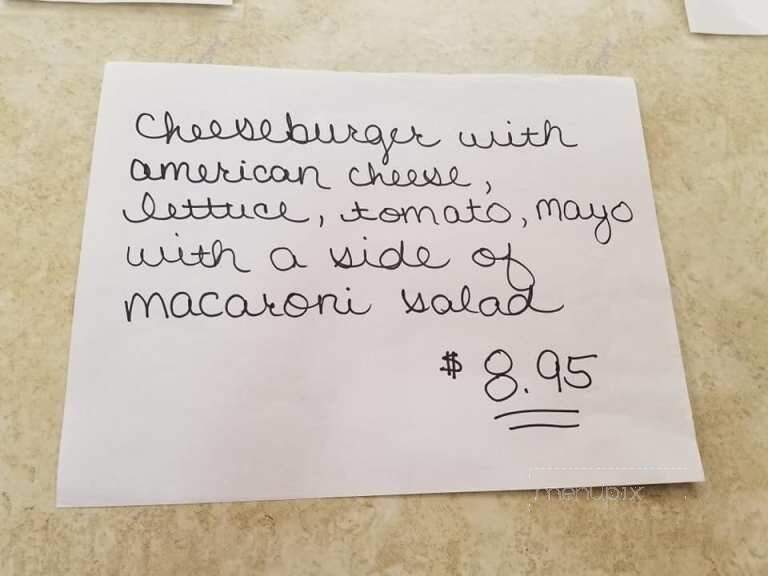 Cheeseburger with
american cheese,
lettuce, tomato, mayo
with a side of
macaroni salad
$ 8.95
menupix